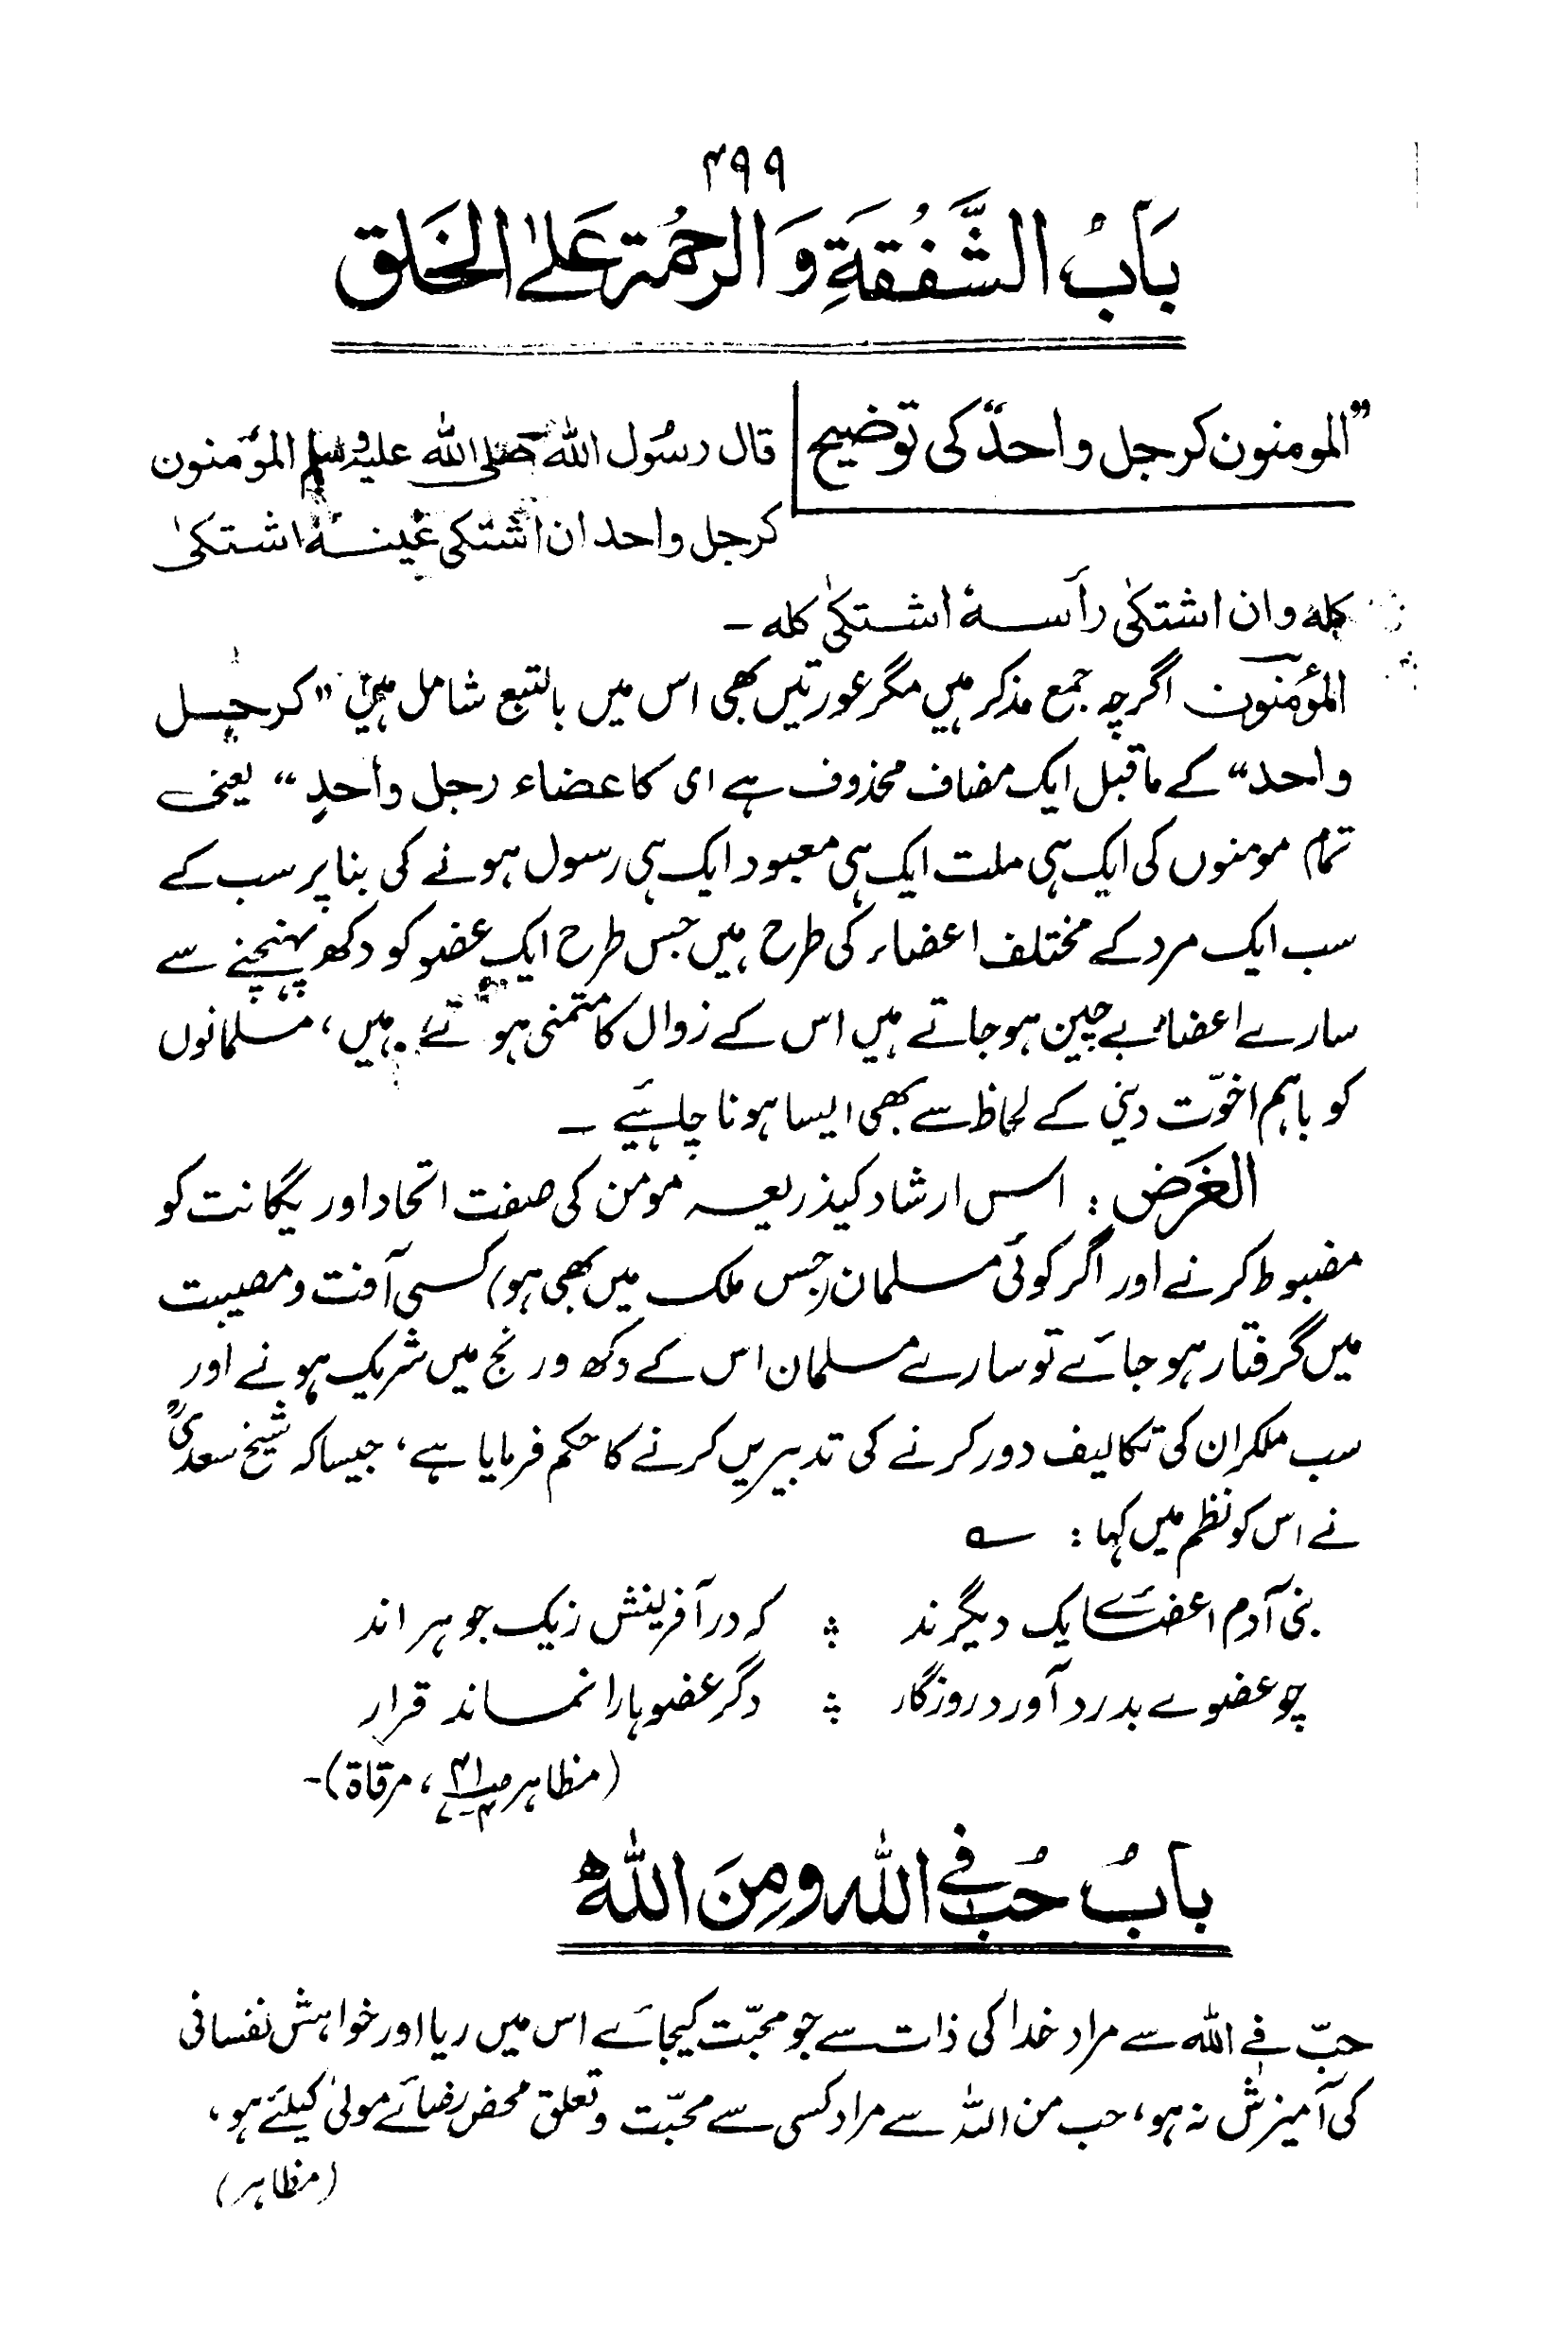 ۴۹۹
بَابُ الشَّفُقَةِ وَالرحُمة عَلیٰ الخَلق
”المومنون کرجل واحد“ کی توضیح
قال رسُول اللہ صلی اللہ علیہ وسلم المؤمنون
کرجل واحد ان اشتکی عینہٗ اشتکیٰ
کلہ وان اشتکیٰ رأسہٗ اشتکیٰ کلہ ۔
المؤمنون اگرچہ جمع مذکر ہیں مگر عورتیں بھی اس میں بالتبع شامل ہیں ”کرجل
واحد“ کے ماقبل ایک مضاف محذوف ہے ای کاعضاء رجل واحدٍ “ یعنی
تمام مومنوں کی ایک ہی ملت ایک ہی معبود ایک ہی رسول ہونے کی بنا پر سب کے
سب ایک مرد کے مختلف اعضاء کی طرح ہیں جس طرح ایک عضو کو دکھ پہنچنے سے
سارے اعضاء بے چین ہوجاتے ہیں اس کے زوال کا متمنی ہوتے ہیں، مسلمانوں
کو باہم اخوّت دینی کے لحاظ سے بھی ایسا ہونا چاہئیے ۔
الغَرَض : اس ارشاد کیذریعہ مومن کی صفت اتحاد اور یگانت کو
مضبوط کرنے اور اگر کوئی مسلمان (جس ملک میں بھی ہو) کسی آفت و مصیبت
میں گرفتار ہو جائے تو سارے مسلمان اس کے دکھ و رنج میں شریک ہونے اور
سب ملکر ان کی تکالیف دور کرنے کی تدبیریں کرنے کا حکم فرمایا ہے، جیساکہ شیخ سعدیؒ
نے اس کو نظم میں کہا : ؎
بنی آدم اعضائے یک دیگرند ؞ کہ در آفرینش زیک جوہر اند
چو عضوے بدرد آورد روزگار ؞ دگر عضوہارا نماند قرار
(مظاہر ، مرقاة)۔
بابُ حُب فے اللہ ومِنَ اللہ
حبّ فے اللہ سے مراد خدا کی ذات سے جو محبّت کیجائے اس میں ریا اور خواہش نفسانی
کی آمیزش نہ ہو، حب من اللہ سے مراد کسی سے محبّت وتعلق محض رضائے مولیٰ کیلئے ہو،
(مظاہر)